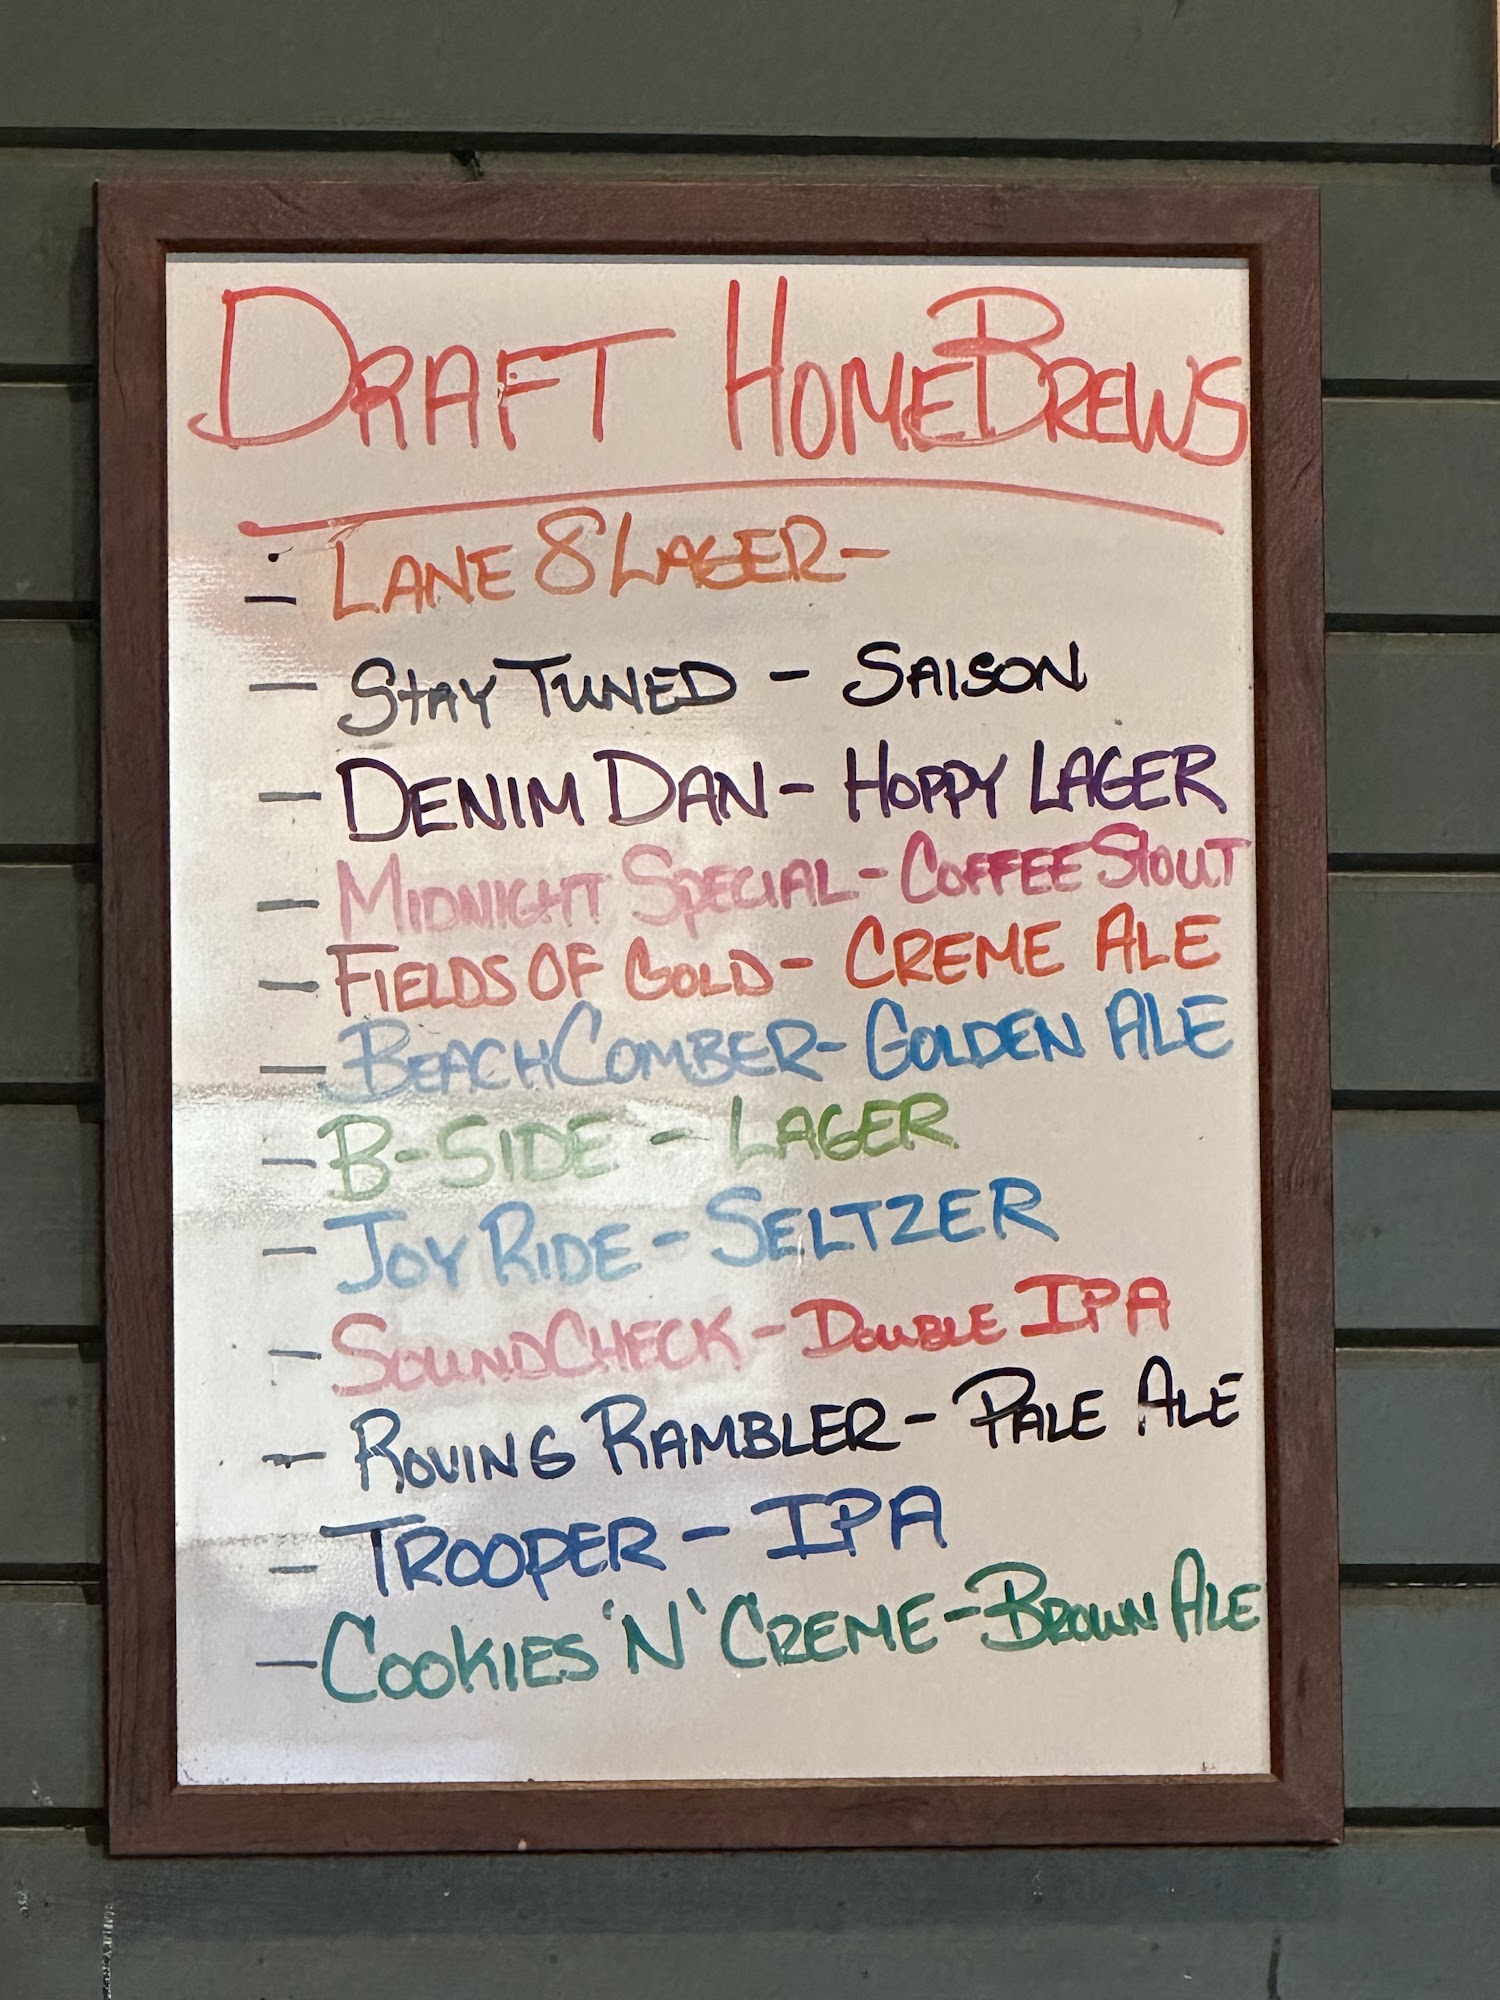 DRAFT HOMEBREWS
- LANE 8 LAGER-
- STAY TUNED - SAISON
- DENIM DAN - HOPPY LAGER
- MIDNIGHT SPECIAL - COFFEE STOUT
- FIELDS OF GOLD - CREME ALE
- BEACHCOMBER - GOLDEN ALE
- B-SIDE - LAGER
- JOY RIDE - SELTZER
- SOUNDCHECK - DOUBLE IPA
- ROVING RAMBLER - PALE ALE
- TROOPER - IPA
- COOKIES 'N' CREME - BROWN ALE